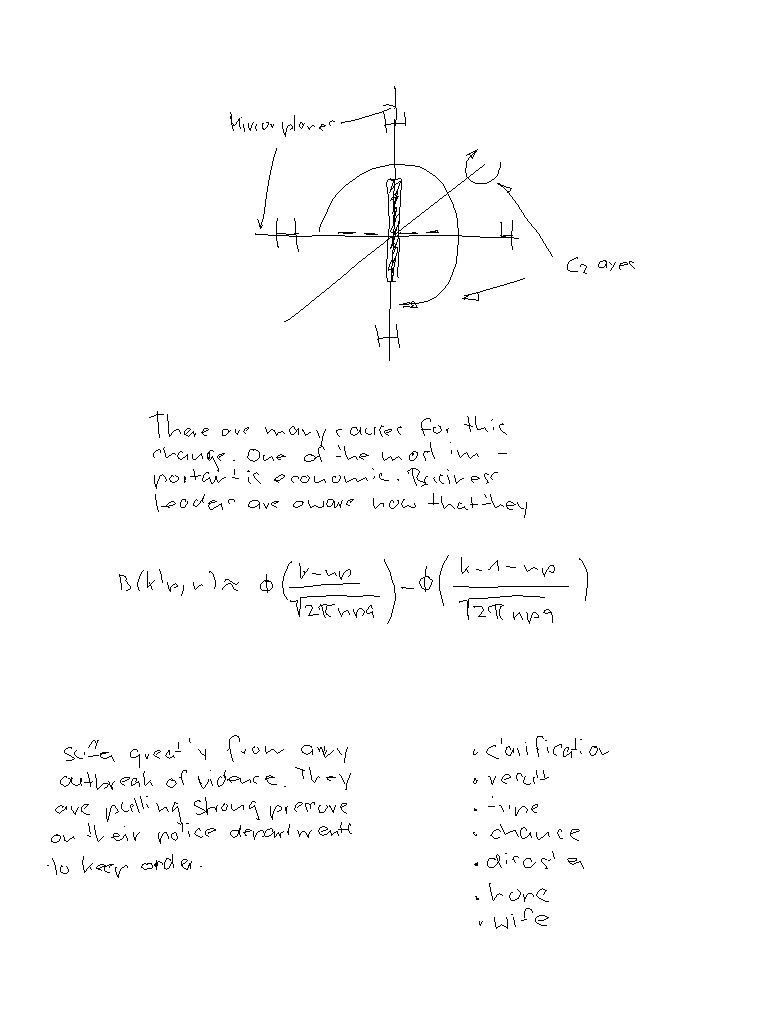 Mirror planes
C₂ axes
There are many causes for this
change. One of the most im -
portant is economic. Business
leaders are aware now that they
B(k|p,n) ≈ ϕ((k-np)/√(2πnpq)) - ϕ((k-1-np)/√(2πnpq))
suffer greatly from any
outbreak of violence. They
are putting strong pressure
on their police departments
to keep order.
· clarification
· result
· time
· chance
· disaster
· home
· wife